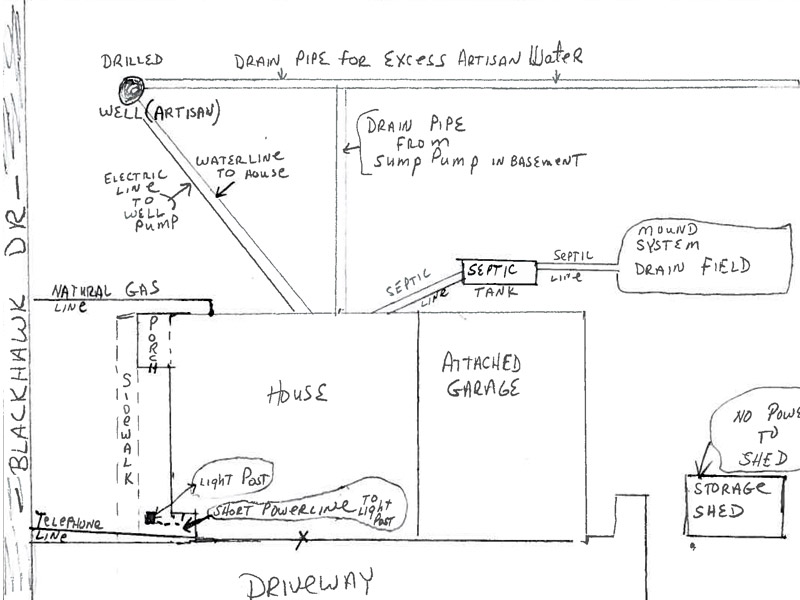 DRILLED
DRAIN PIPE for EXCESS ARTISAN Water
WELL (ARTISAN)
DRAIN PIPE
FROM
Sump Pump IN BASEMENT
WATERLINE
TO HOUSE
ELECTRIC
LINE
TO
WELL
PUMP
MOUND
SYSTEM
DRAIN FIELD
SEPTIC
LINE
SEPTIC
TANK
SEPTIC
LINE
NATURAL GAS
LINE
BLACKHAWK DR
PORCH
SIDEWALK
HOUSE
ATTACHED
GARAGE
NO POWE
TO
SHED
STORAGE
SHED
LIGHT POST
SHORT POWERLINE TO
LIGHT
POST
TELEPHONE
LINE
X
DRIVEWAY